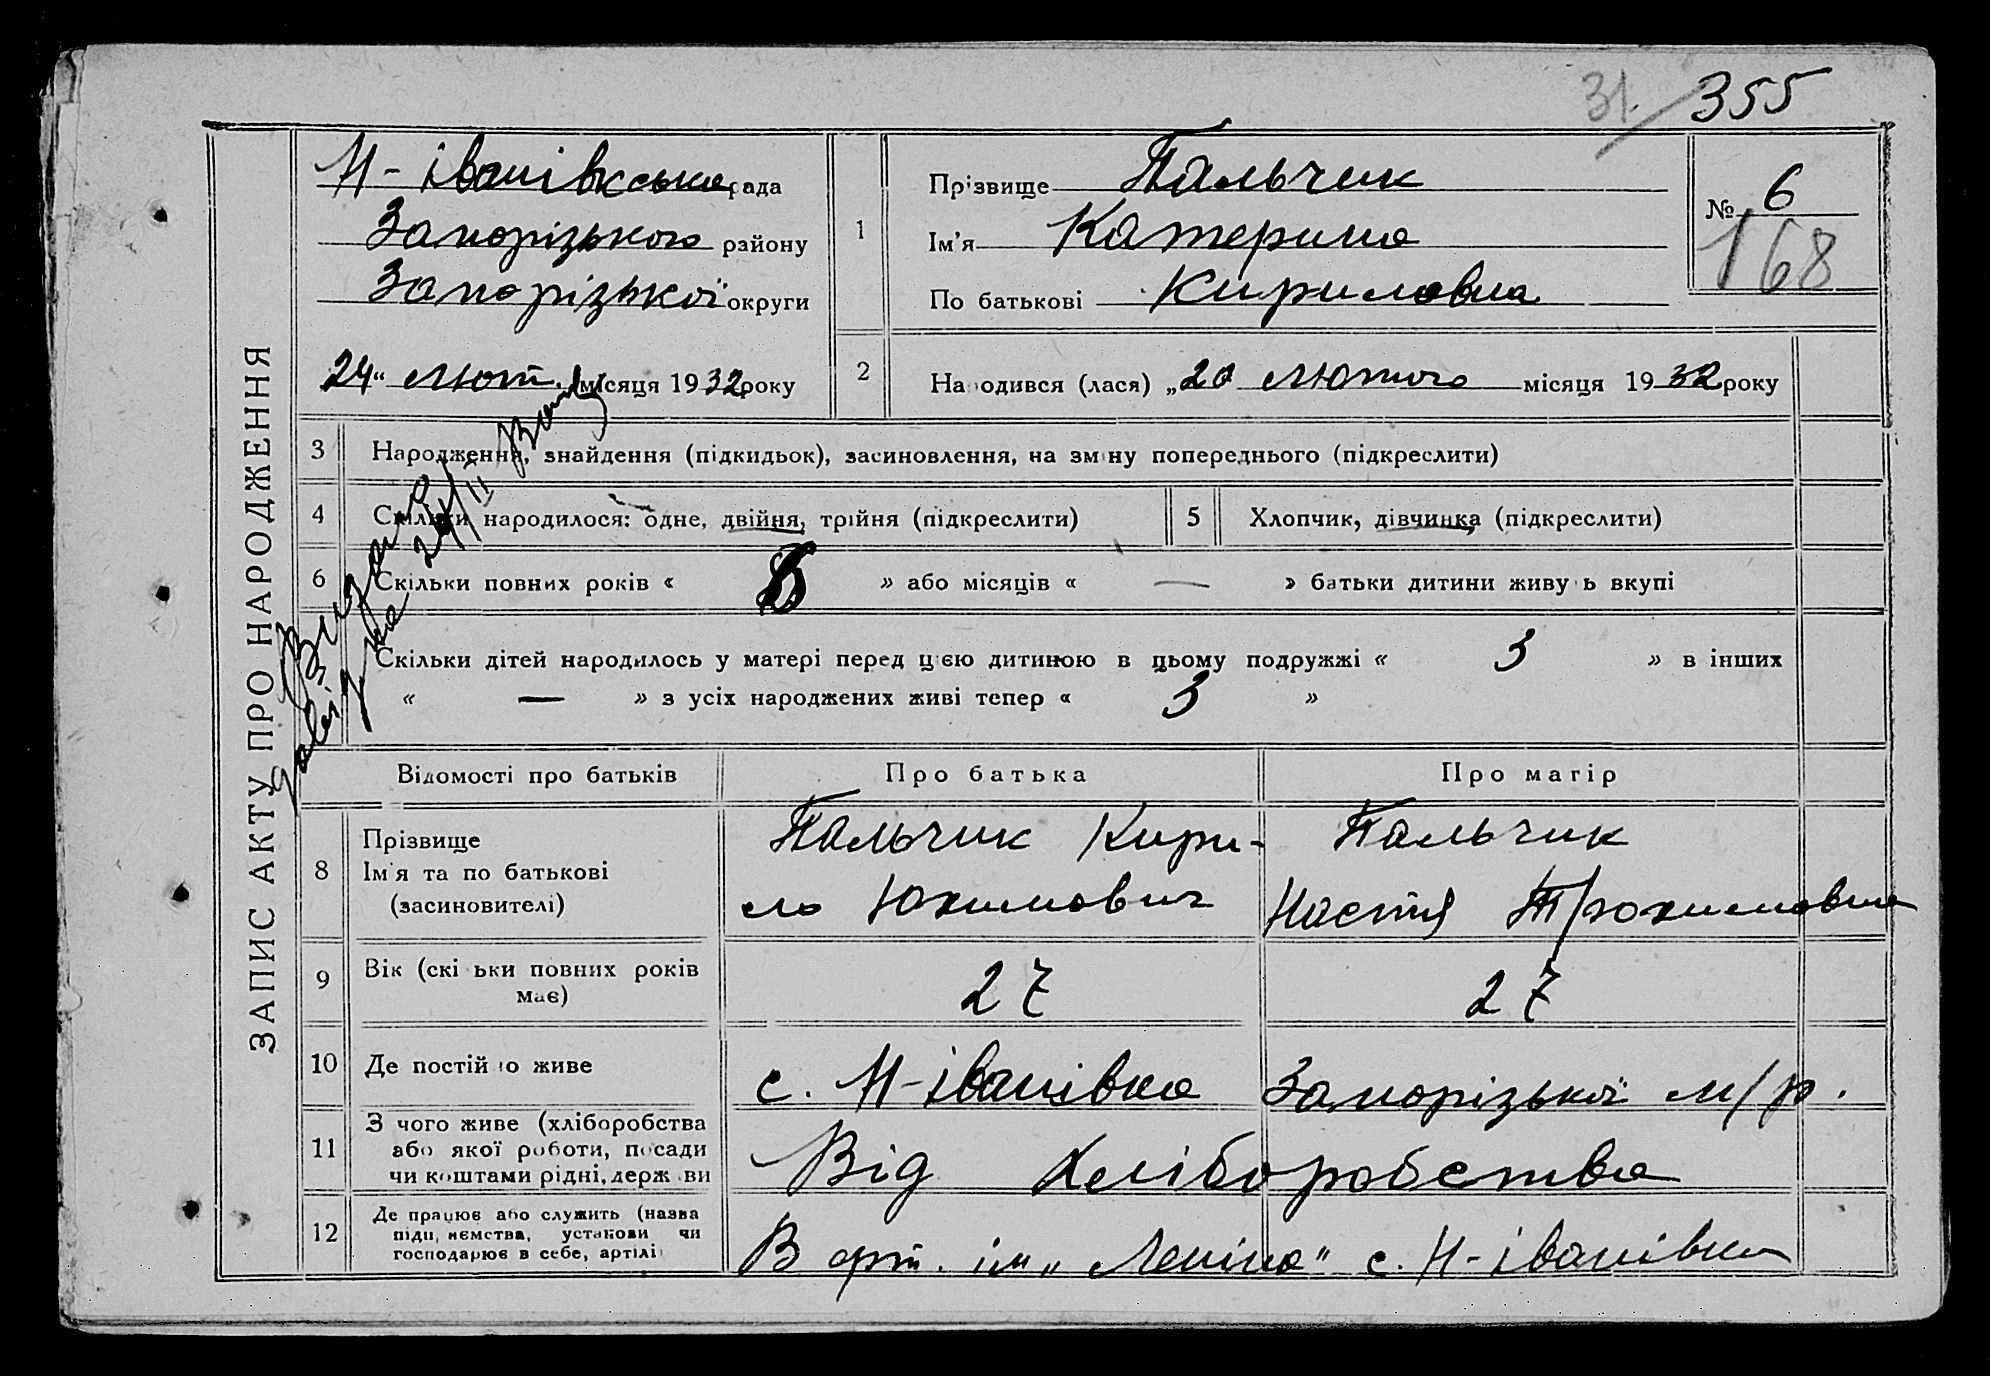 31. / 355
Н-Іванівська рада
Запорізького району
Запорізької округи
24 „ лют. місяця 1932 року
1
Прізвище Пальчик
Ім’я Катерина
По батькові Кириловна
№ 6
168
2
Народився (лася) „20 лютого місяця 1932 року
ЗАПИС АКТУ ПРО НАРОДЖЕННЯ
3 Народження, знайдення (підкидьок), засиновлення, на зміну попереднього (підкреслити)
4 Скільки народилося: одне, двійня, трійня (підкреслити)
5 Хлопчик, дівчинка (підкреслити)
6 Скільки повних років « 8 » або місяців « — » батьки дитини живуть вкупі
Скільки дітей народилось у матері перед цією дитиною в цьому подружжі « 3 » в інших
« — » з усіх народжених живі тепер « 3 »
Видано
24/II
Відомості про батьків Про батька Про матір
8 Прізвище
Ім'я та по батькові
(засиновителі)
Пальчик Кири-
ло Юхимович
Пальчик
Настя Трохимовна
9 Вік (скільки повних років
має)
27 27
10 Де постійно живе
с. Н-Іванівка Запорізької м/р.
11 З чого живе (хліборобства
або якої роботи, посади
чи коштами рідні, держави
Від хліборобства
12 Де працює або служить (назва
підприємства, установи чи
господарює в себе, артілі
В арт. ім „Леніна" с. Н-Іванівка